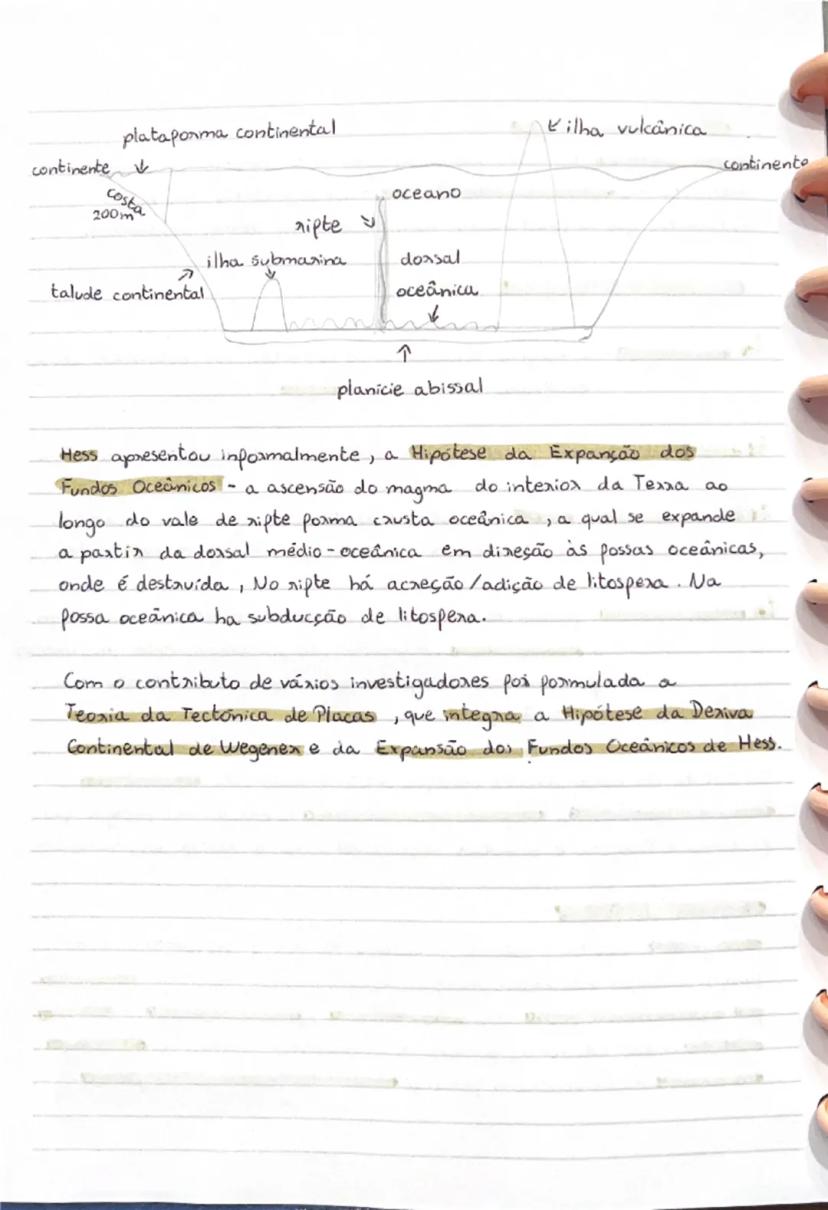 plataforma continental
ilha vulcânica
continente
continente
costa
200m
oceano
rifte
ilha submarina
dorsal
talude continental
oceânica
planície abissal
Hess apresentou informalmente, a Hipótese da Expanção dos
Fundos Oceânicos - a ascensão do magma do interior da Terra ao
longo do vale de rifte forma crusta oceânica, a qual se expande
a partir da dorsal médio-oceânica em direção às fossas oceânicas,
onde é destruída, No rifte há acreção/adição de litosfera. Na
fossa oceânica ha subducção de litosfera.
Com o contributo de vários investigadores foi formulada a
Teoria da Tectónica de Placas, que integra a Hipótese da Deriva
Continental de Wegener e da Expansão dos Fundos Oceânicos de Hess.